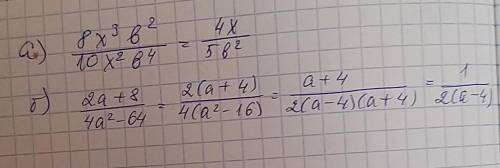 а) 8x³b²/10x²b⁴ = 4x/5b²
б) 2a+8/4a²-64 = 2(a+4)/4(a²-16) = a+4/2(a-4)(a+4) = 1/2(a-4)